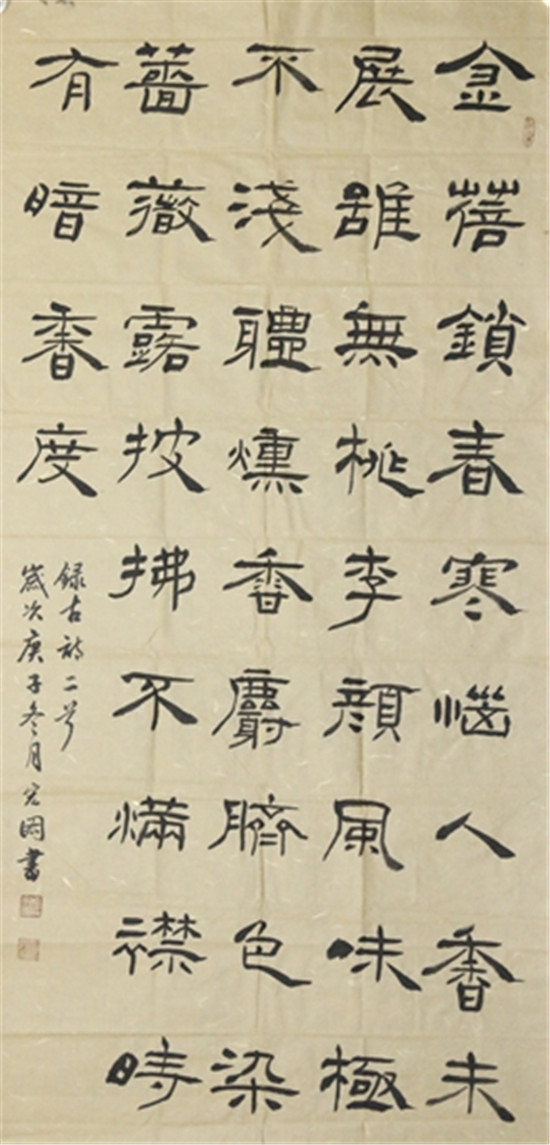 金蓓鎖春寒惱人香未
展雖無桃李顏風味極
不淺體燻香麝臍色染
薔薇露披拂不滿襟時
有暗香度
錄古詩二首
歲次庚子冬月宏國書